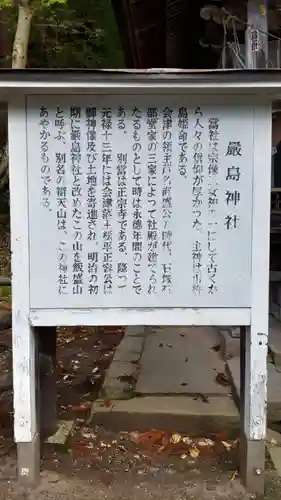 厳島神社
當社は宗像三女神の一にして古くか
ら人々の信仰が厚かった。主神は市杵
島姫命である。
会津の領主芦名盛公の時代、石塚、石
部、堂家の三家によって社殿が建てられ
たるものとして時は永徳年間のことで
ある。 別當は正宗寺である。降って
元禄十三年には会津藩主松平正容公は
御神像及び土地を寄進され、明治の初
期に厳島神社と改めたこの山を飯盛山
と呼ぶ、別名の辯天山は、この神社に
あやかるものである。